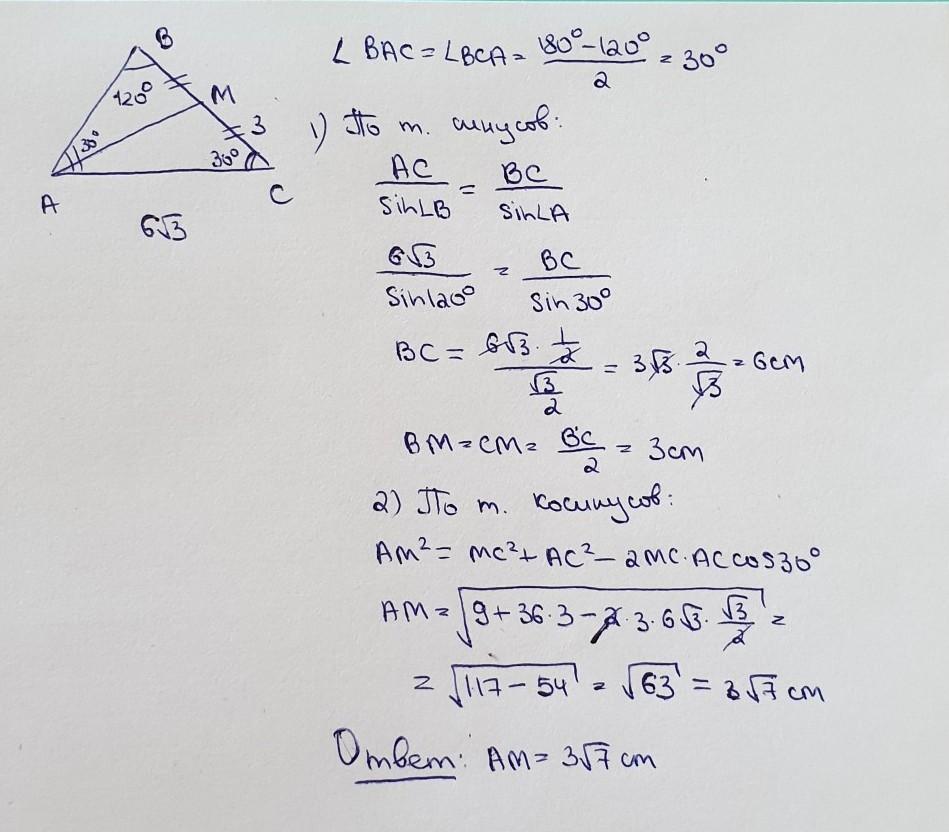 B
120°
M
3
30°
30°
A
C
6√3
∠BAC = ∠BCA = (180° - 120°)/2 = 30°
1) По т. синусов:
AC/sin∠B = BC/sin∠A
6√3/sin120° = BC/sin30°
BC = (6√3 · 1/2)/(√3/2) = 3√3 · 2/√3 = 6cm
BM = CM = BC/2 = 3cm
2) По т. косинусов:
AM² = MC² + AC² - 2MC · AC cos30°
AM = √(9 + 36 · 3 - 2 · 3 · 6√3 · √3/2) =
= √(117 - 54) = √63 = 3√7 cm
Ответ: AM = 3√7 cm